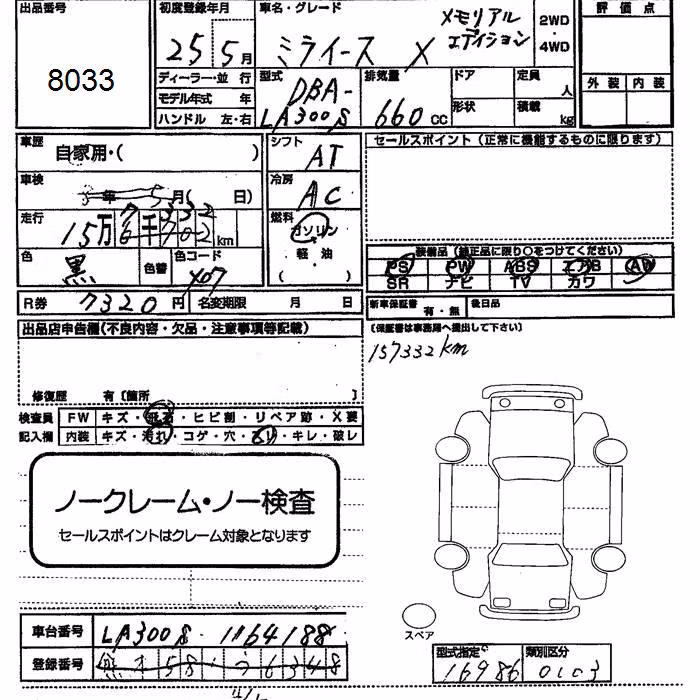 出品番号 初度登録年月 車名・グレード 評価点
8033 25 5月 ミライース X メモリアルエディション 2WD・4WD
ディーラー・並行 型式 排気量 ドア 定員 人 外装 内装
モデル年式 年 DBA-
ハンドル 左・右 LA300S 660cc 形状 積載 kg
車歴 自家用・( ) シフト AT セールスポイント(正常に機能するものに限ります)
車検 年 5月( 日) 冷房 AC
走行 15万 km 燃料 ガソリン・軽油 ( )
色 黒 色替 色コード X07
装備品(純正品に限り○をつけてください)
PS PW ABS エアB AW
SR ナビ TV カワ
R券 7320円 名変期限 月 日 新車保証書 有・無 後日品
出品店申告欄(不良内容・欠品・注意事項等記載) 〔保証書は事務局へ提出して下さい〕
157332km
修復歴 有〔箇所 〕
検査員 FW キズ・飛石・ヒビ割・リペア跡・X要
記入欄 内装 キズ・汚れ・コゲ・穴・スリ・キレ・破レ
ノークレーム・ノー検査
セールスポイントはクレーム対象となります
スペア
車台番号 LA300S-1164188
型式指定 類別区分
登録番号 熊本58
16986 0103